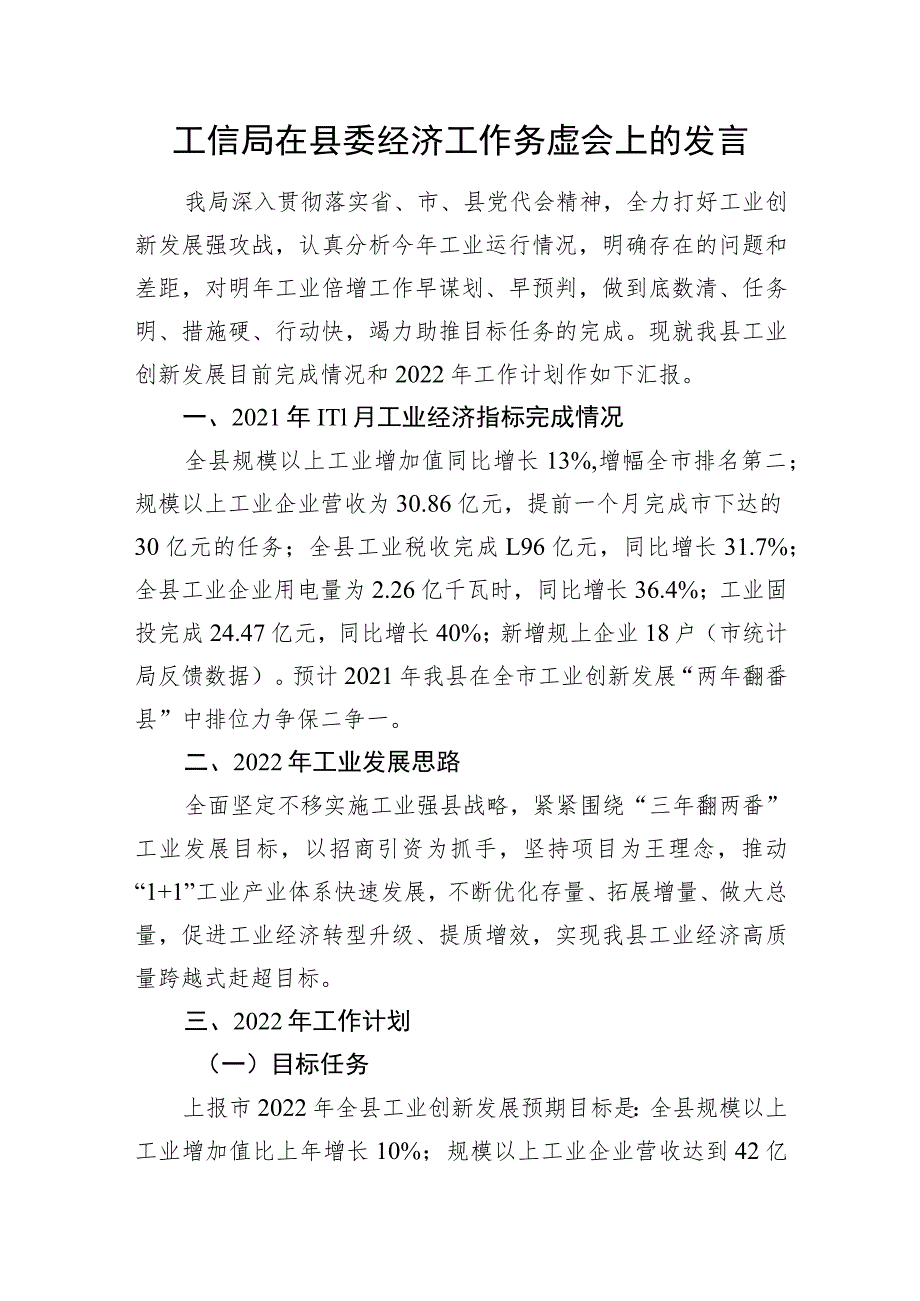 工信局在县委经济工作务虚会上的发言
我局深入贯彻落实省、市、县党代会精神，全力打好工业创
新发展强攻战，认真分析今年工业运行情况，明确存在的问题和
差距，对明年工业倍增工作早谋划、早预判，做到底数清、任务
明、措施硬、行动快，竭力助推目标任务的完成。现就我县工业
创新发展目前完成情况和2022年工作计划作如下汇报。
一、2021年ITl月工业经济指标完成情况
全县规模以上工业增加值同比增长13%,增幅全市排名第二；
规模以上工业企业营收为30.86亿元，提前一个月完成市下达的
30亿元的任务；全县工业税收完成L96亿元，同比增长31.7%；
全县工业企业用电量为2.26亿千瓦时，同比增长36.4%；工业固
投完成24.47亿元，同比增长40%；新增规上企业18户（市统计
局反馈数据）。预计2021年我县在全市工业创新发展“两年翻番
县”中排位力争保二争一。
二、2022年工业发展思路
全面坚定不移实施工业强县战略，紧紧围绕“三年翻两番”
工业发展目标，以招商引资为抓手，坚持项目为王理念，推动
“1+1”工业产业体系快速发展，不断优化存量、拓展增量、做大总
量，促进工业经济转型升级、提质增效，实现我县工业经济高质
量跨越式赶超目标。
三、2022年工作计划
（一）目标任务
上报市2022年全县工业创新发展预期目标是：全县规模以上
工业增加值比上年增长10%；规模以上工业企业营收达到42亿